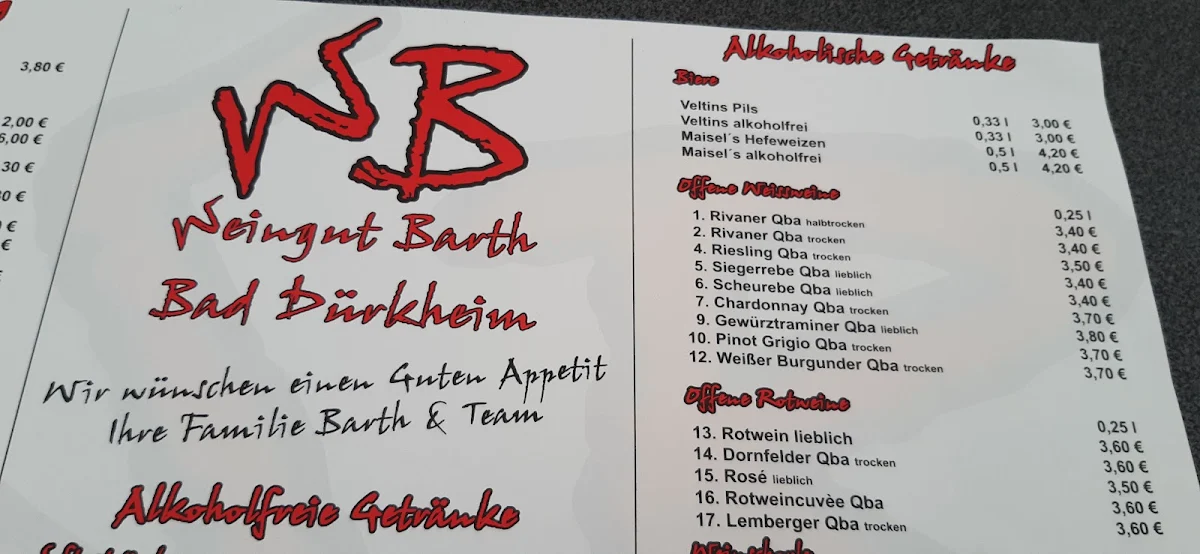 3,80 €
2,00 €
WB
Weingut Barth
Bad Dürkheim
Wir wünschen einen Guten Appetit
Ihre Familie Barth & Team
Alkoholfreie Getränke
Alkoholische Getränke
Biere
Veltins Pils 0,33 l 3,00 €
Veltins alkoholfrei 0,33 l 3,00 €
Maisel´s Hefeweizen 0,5 l 4,20 €
Maisel´s alkoholfrei 0,5 l 4,20 €
Offene Weissweine
0,25 l
1. Rivaner Qba halbtrocken 3,40 €
2. Rivaner Qba trocken 3,40 €
4. Riesling Qba trocken 3,50 €
5. Siegerrebe Qba lieblich 3,40 €
6. Scheurebe Qba lieblich 3,40 €
7. Chardonnay Qba trocken 3,70 €
9. Gewürztraminer Qba lieblich 3,80 €
10. Pinot Grigio Qba trocken 3,70 €
12. Weißer Burgunder Qba trocken 3,70 €
Offene Rotweine
0,25 l
13. Rotwein lieblich 3,60 €
14. Dornfelder Qba trocken 3,60 €
15. Rosé lieblich 3,50 €
16. Rotweincuvèe Qba 3,60 €
17. Lemberger Qba trocken 3,60 €